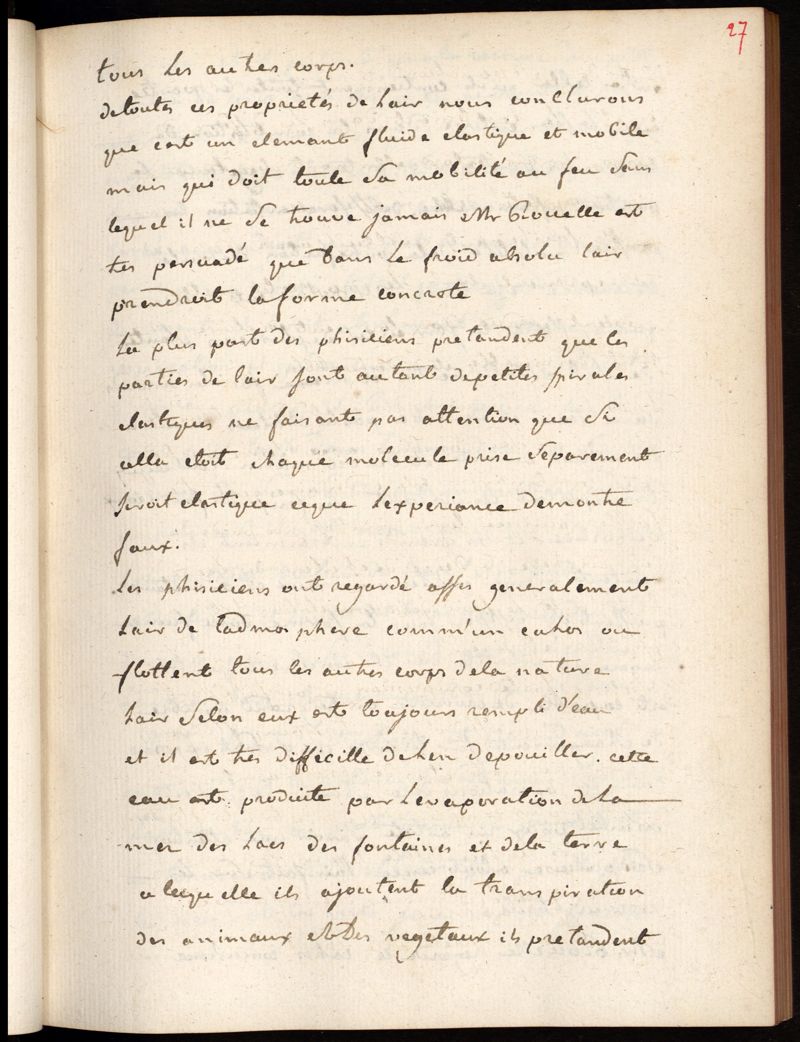 27
tous les autres corps.
de toutes ces proprietés de lair nous conclurons
que cest un elemant fluide elastique et mobile
mais qui doit toute sa mobilité au feu sans
lequel il ne se trouve jamais Mr Rouelle est
tres persuadé que dans le froid absolu lair
prendroit la forme concrete
La plus part des phisiciens pretandent que les
parties de lair sont autant de petites spirales
elastiques ne faisant pas attention que si
cella etoit chaque molecule prise separement
seroit elastique ceque Lexperiance demontre
faux.
Les phisiciens ont regardé assés generalement
Lair de ladmosphere comm'un cahos ou
flottent tous les autres corps dela nature
Lair selon eux est toujours rempli d'eau
et il est tres difficille de len depouiller. cette
eau est produite par Levaporation de La
mer des Lacs des fontaines et dela terre
a lequelle ils ajoutent la transpiration
des animaux et Des vegetaux ils pretandent